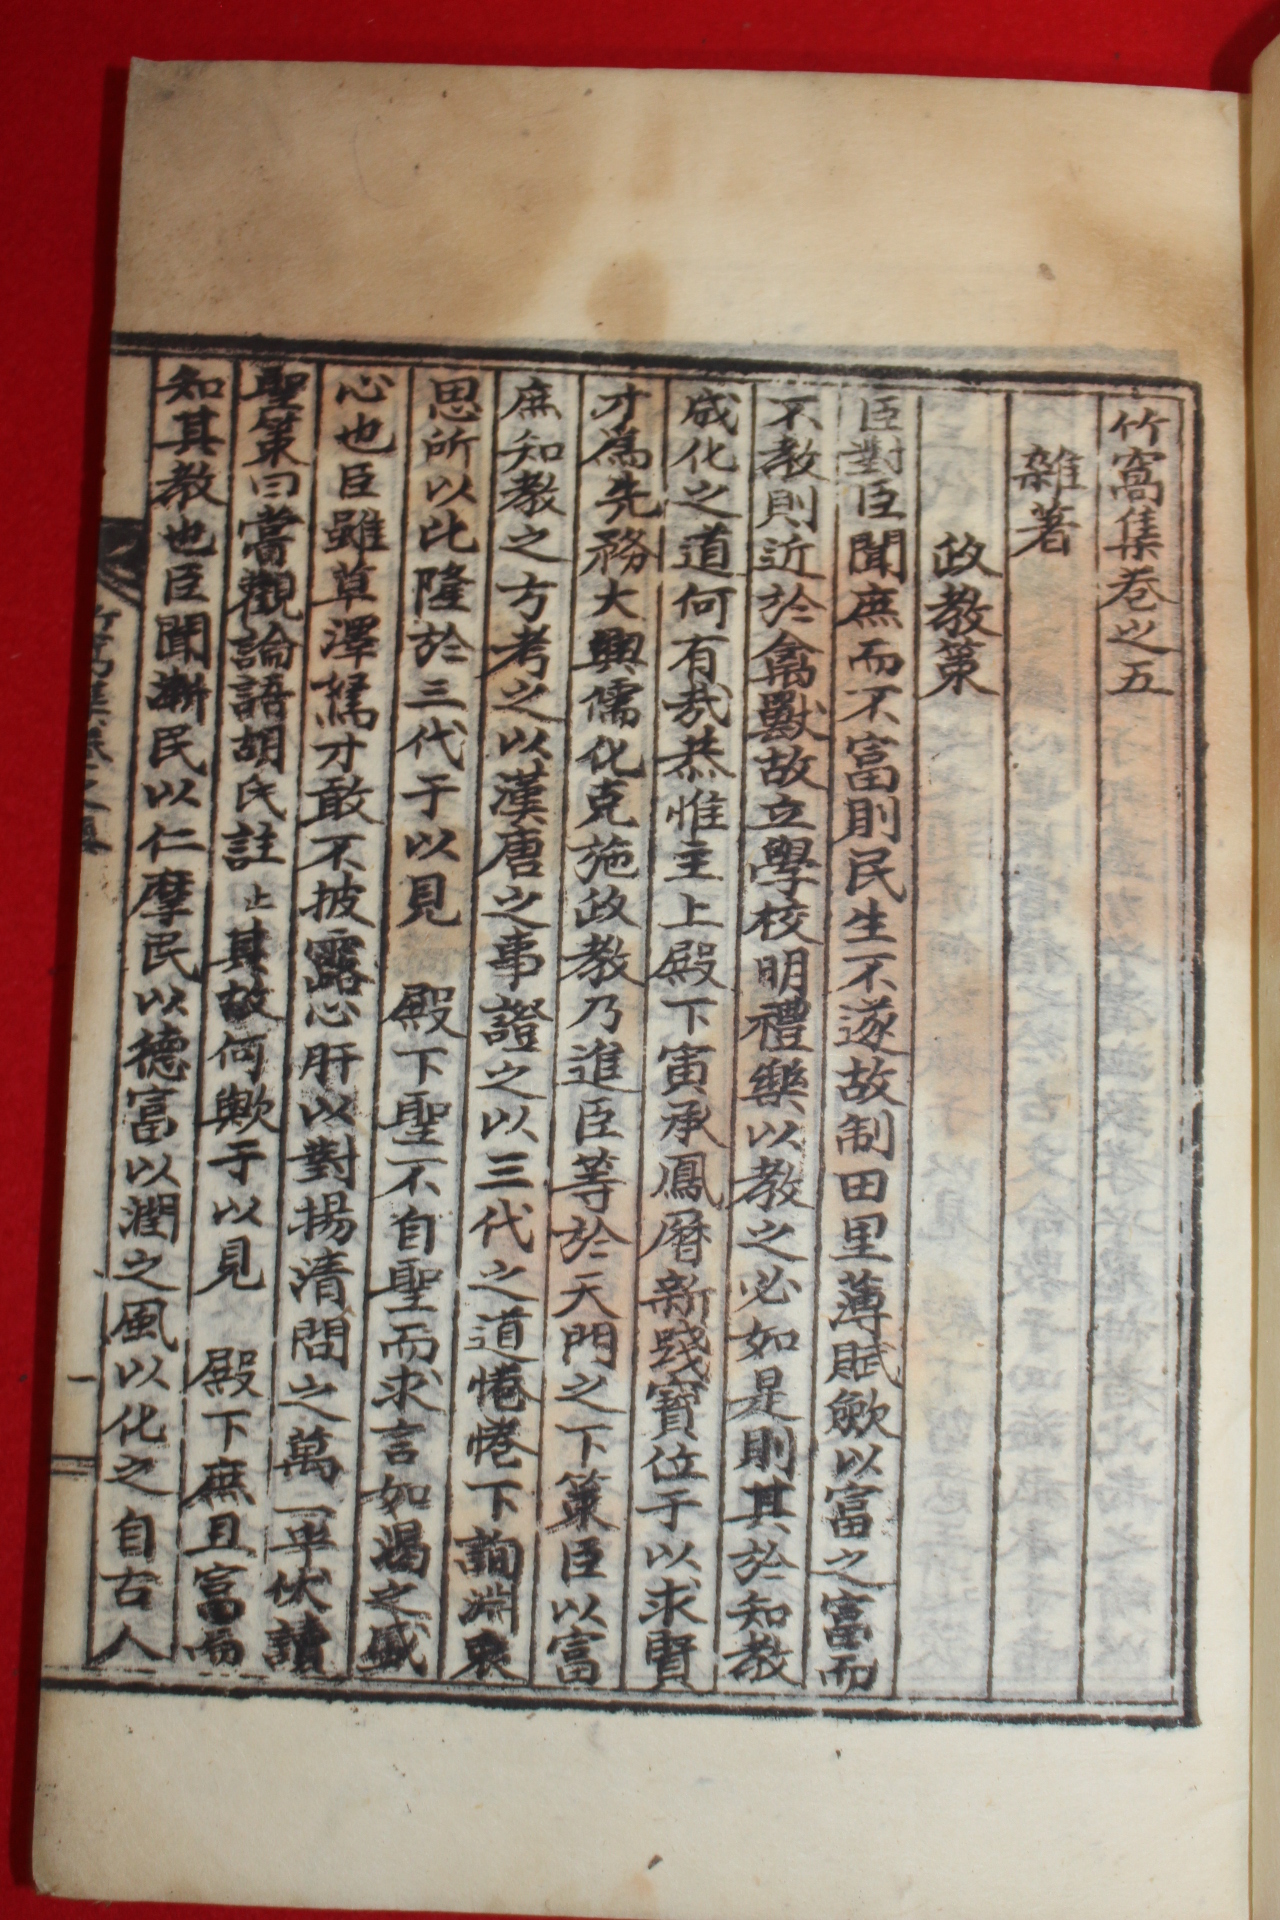 竹窩集卷之五
雜著
政教策
臣對臣聞庶而不富則民生不遂故制田里薄賦歛以富之富而
不教則近於禽獸故立學校明禮樂以教之必如是則其於知教
成化之道何有哉恭惟主上殿下寅承鳳曆新踐寶位于以求賢
才爲先務大興儒化克施政教乃進臣等於天門之下策臣以富
庶知教之方考之以漢唐之事證之以三代之道惓惓下詢淵衷
思所以比隆於三代于以見 殿下聖不自聖而求言如渴之盛
心也臣雖草澤駑才敢不披露心肝以對揚清問之萬一乎伏讀
聖策曰嘗觀論語胡氏註止其故何歟于以見 殿下庶且富而
知其教也臣聞漸民以仁摩民以德富以潤之風以化之自古人
竹窩集卷之五
一